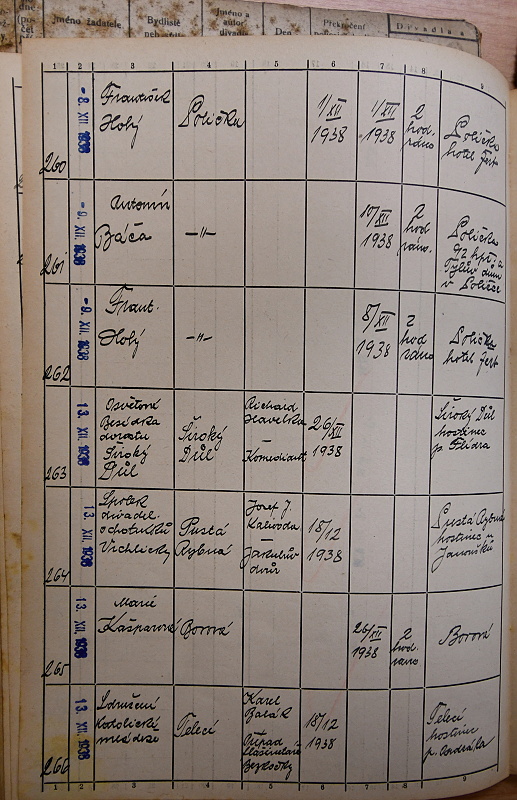 Jméno žadatele
Bydliště
Jméno a
autor
Den
Překročení
Divadla a
1 2 3 4 5 6 7 8 9
260
-8. XII. 1938
František
Holý
Polička
1/XII
1938
1/XII
1938
2
hod.
ráno
Polička
hotel Fert
261
-9. XII. 1938
Antonín
Báča
—"—
10/XII
1938
2
hod
ráno.
Polička
Tylův dům
v Poličce
262
-9. XII. 1938
Frant.
Holý
—"—
8/XII
1938
2
hod
ráno
Polička
hotel Fert
263
13. XII. 1938
Osvětová
Besídka
dorostu
Široký
Důl
Široký
Důl
Richard
Havelka
Komedianti
26/XII
1938
Široký Důl
hostinec
p. Flídra
264
13. XII. 1938
Spolek
divadel.
ochotníků
Vrchlický
Pustá
Rybná
Josef J.
Kalivoda
Jakubův
dvůr
18/12
1938
Pustá Rybná
hostinec u
Janoušků
265
13. XII. 1938
Marie
Kašparová
Borová
26/XII
1938
2
hod.
ráno
Borová
266
13. XII. 1938
Sdružení
katolické
mládeže
Telecí
Karel
Balák
Případ
18/12
1938
Telecí
hostinec
p.
1 2 3 4 5 6 7 8 9